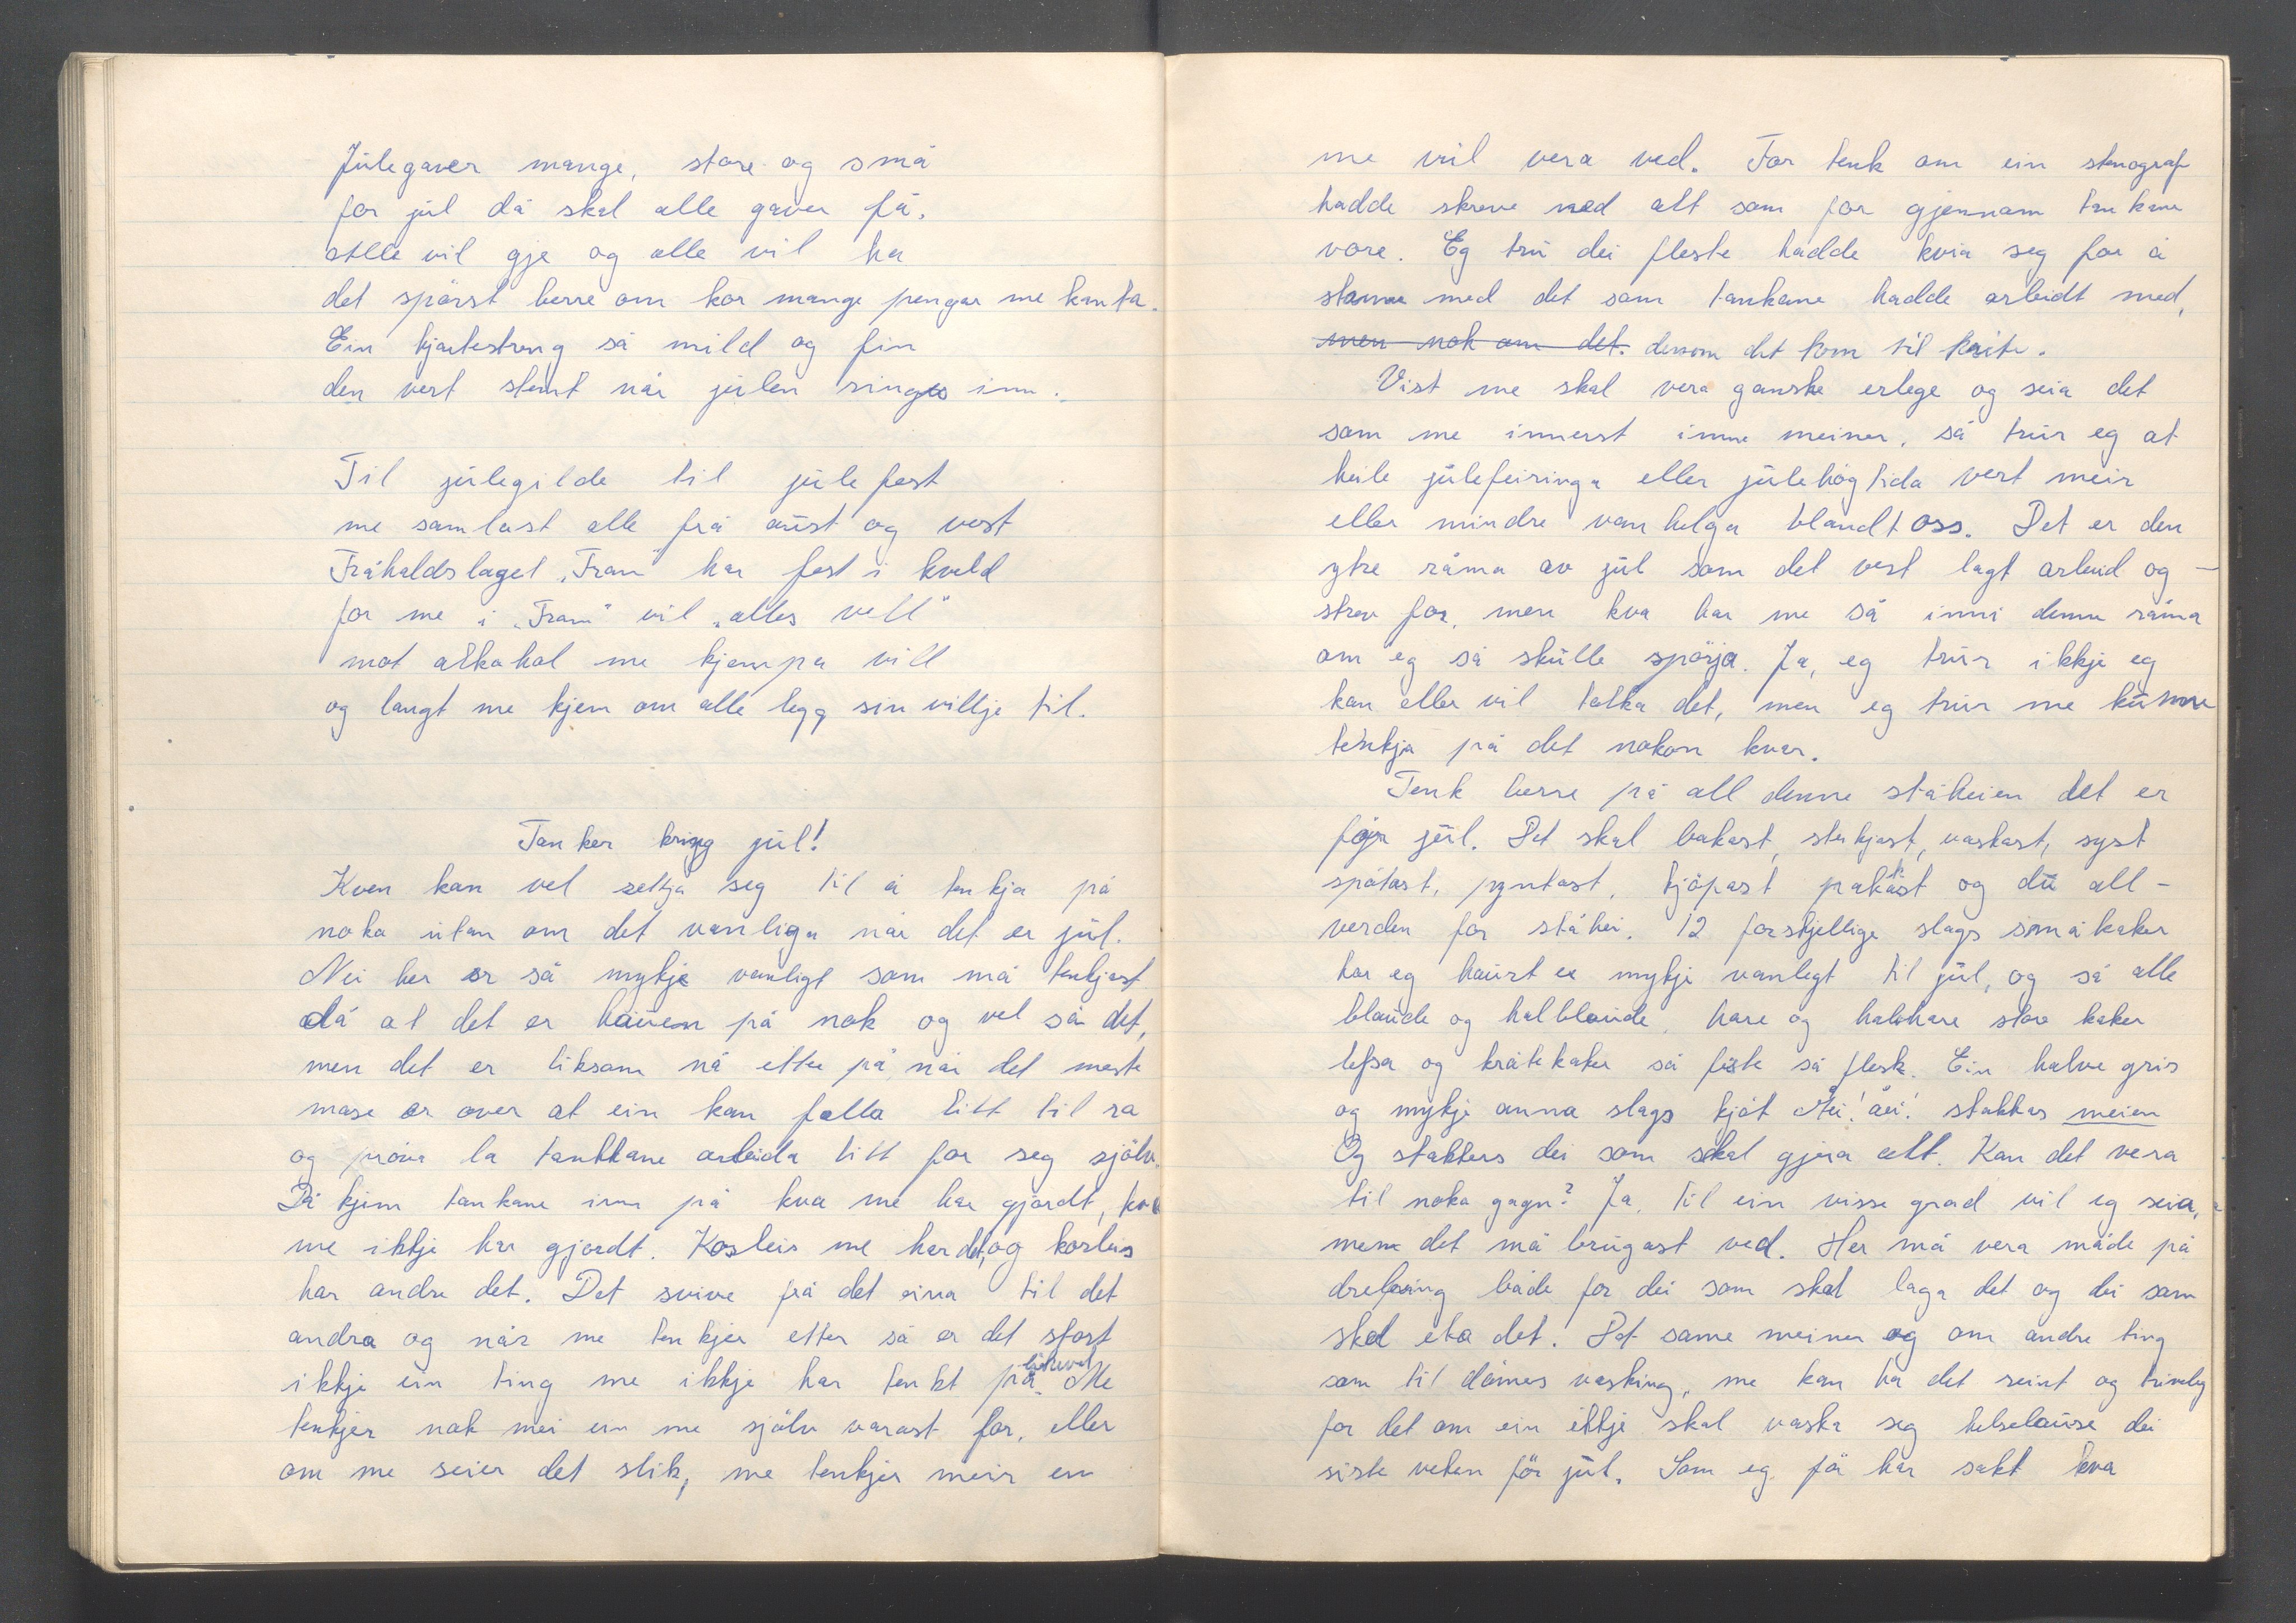 Julegaver mange, store og små
for jul då skal alle gaver få.
Alle vil gje og alle vil ha
det spörst berre om kor mange pengar me kan ta.
Ein hjartestreng så mild og fin
den vert stemt når julen ringes inn.
Til julegilde til julefest
me samlast alle frå aust og vest
Fråhaldslaget „Fram" har fest i kveld
for me i „Fram" vil „alles vell"
mot alkohol me kjempa vill
og langt me kjem om alle legg sin villje til.
Tanker kring jul!
Kven kan vel settja seg til å tenkja på
noko utan om det vanliga når det er jul.
Nei her er så mykje vanligt som må tenkjast
då at det er hauen på nok og vel så det,
men det er liksom nå etter på når det meste
mase er over at ein kan falla litt til ro
og pröva la tankane arbeida litt for seg sjölv.
Då kjem tankane inn på kva me har gjordt, kva
me ikkje har gjordt. Kosleis me har det, og korleis
har andre det. Det svive frå det eina til det
andra og når me tenkjer etter så er det stort
ikkje ein ting me ikkje har tenkt på likevel. Me
tenkjer nok mei en me sjölv varast for, eller
om me seier det slik, me tenkjer meir en
me vil vera ved. For tenk om ein stenograf
hadde skreve ned alt som for gjennom tankane
vore. Eg tru dei fleste hadde kvia seg for å
stanna med det som tankane hadde arbeidt med,
men nok om det. dersom det kom til kvite.
Vist me skal vera ganske erlege og seia det
som me innerst inne meiner, så trur eg at
heile julefeiringa eller julehögtida vert meir
eller mindre vanhelga blandt oss. Det er den
ytre råma av jul som det vert lagt arbeid og -
strev for, men kva har me så inni denne råma
om eg så skulle spörja. Ja, eg trur ikkje eg
kan eller vil tolka det, men eg trur me kunne
tenkja på det nokon kvar.
Tenk berre på all denne ståheien det er
för jul. Det skal bakast, steikjast, vaskast, syst
spåtast, pyntast, kjöpast pakkast og du all-
verden for ståhei. 12 forskjellige slags småkaker
har eg haurt er mykje vanlegt til jul, og så alle
blaude og halblaude, hare og halvhare store kaker
lefsa og kråtekaker så fiste så flesk. Ein halve gris
og mykje anna slags kjöt Nei! åei! stakkas meien
Og stakkers dei som skal gjera alt. Kan det vera
til noko gagn? Ja, til ein visse grad vil eg seia,
men det må brugast ved. Her må vera måde på
drefsing både for dei som skal laga det og dei som
skal eta det. Det same meiner eg om andre ting
som til dömes vasking, me kan ha det reint og triveleg
for det om ein ikkje skal vaska seg helselause dei
siste veken för jul. Som eg för har sakt kva